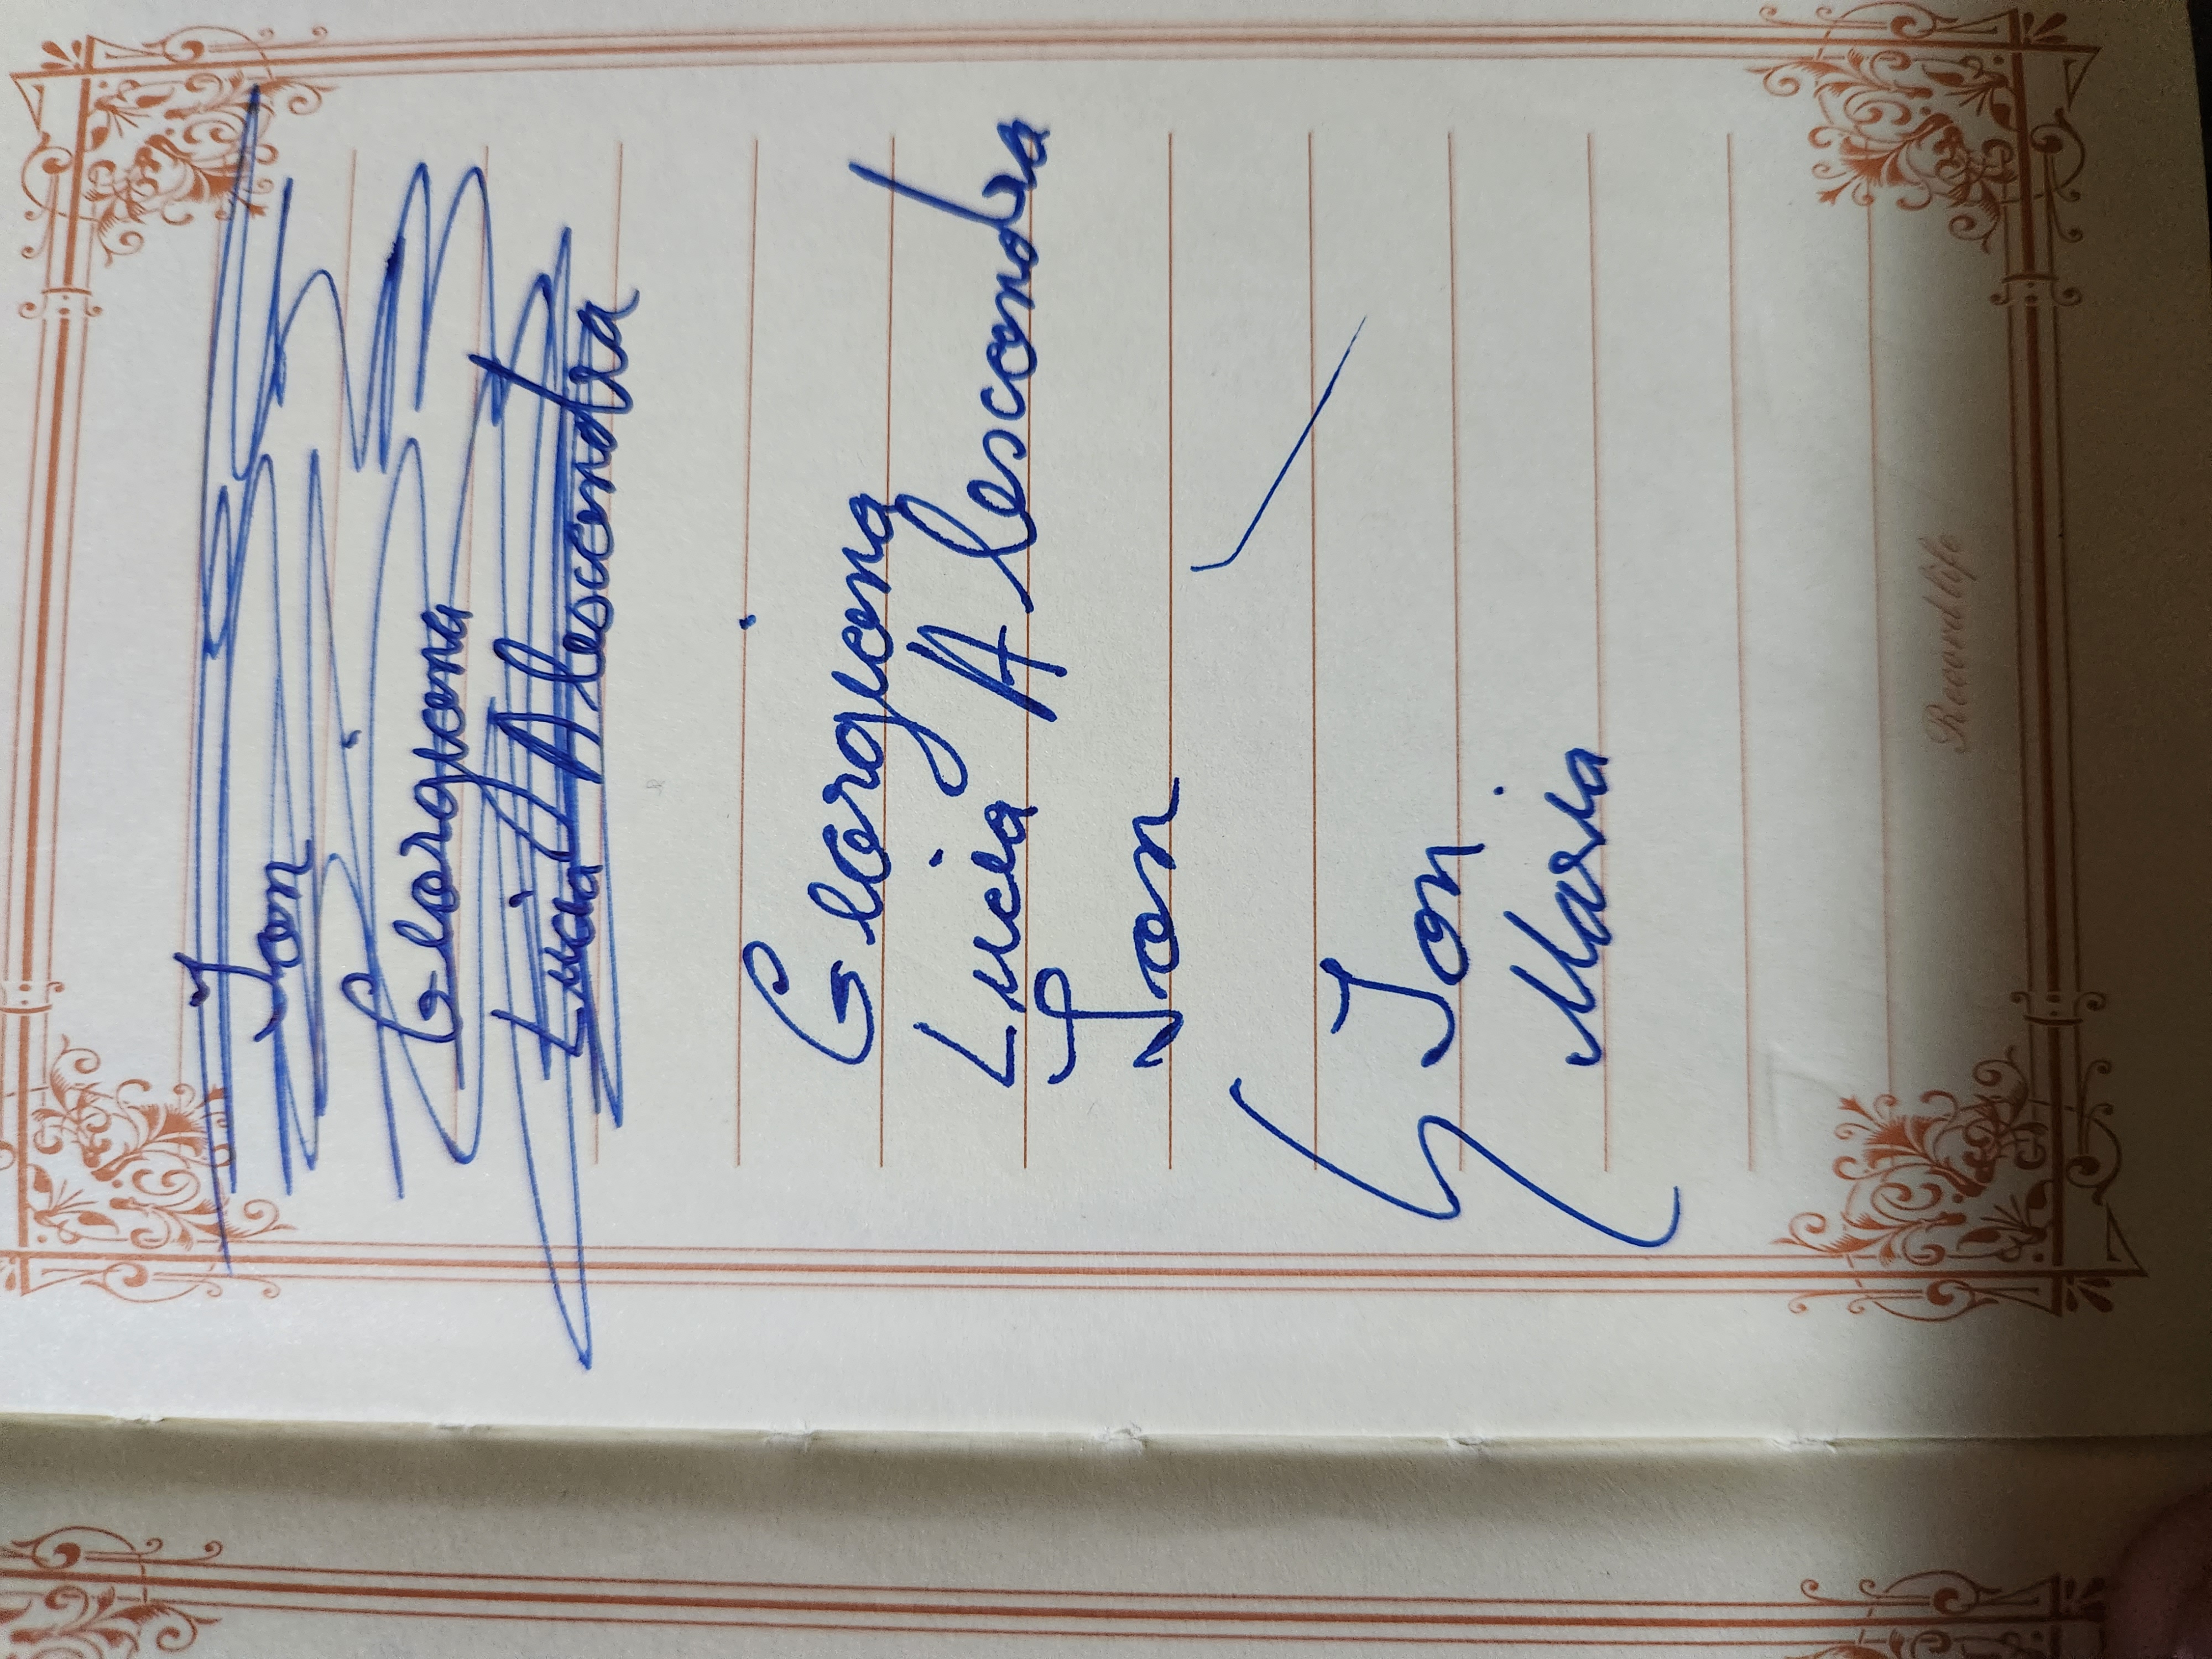 Ion
Georgiana
Lucia Alescandra
Georgiana
Lucia Alescandra
Ion
Ion
Maria
Record life